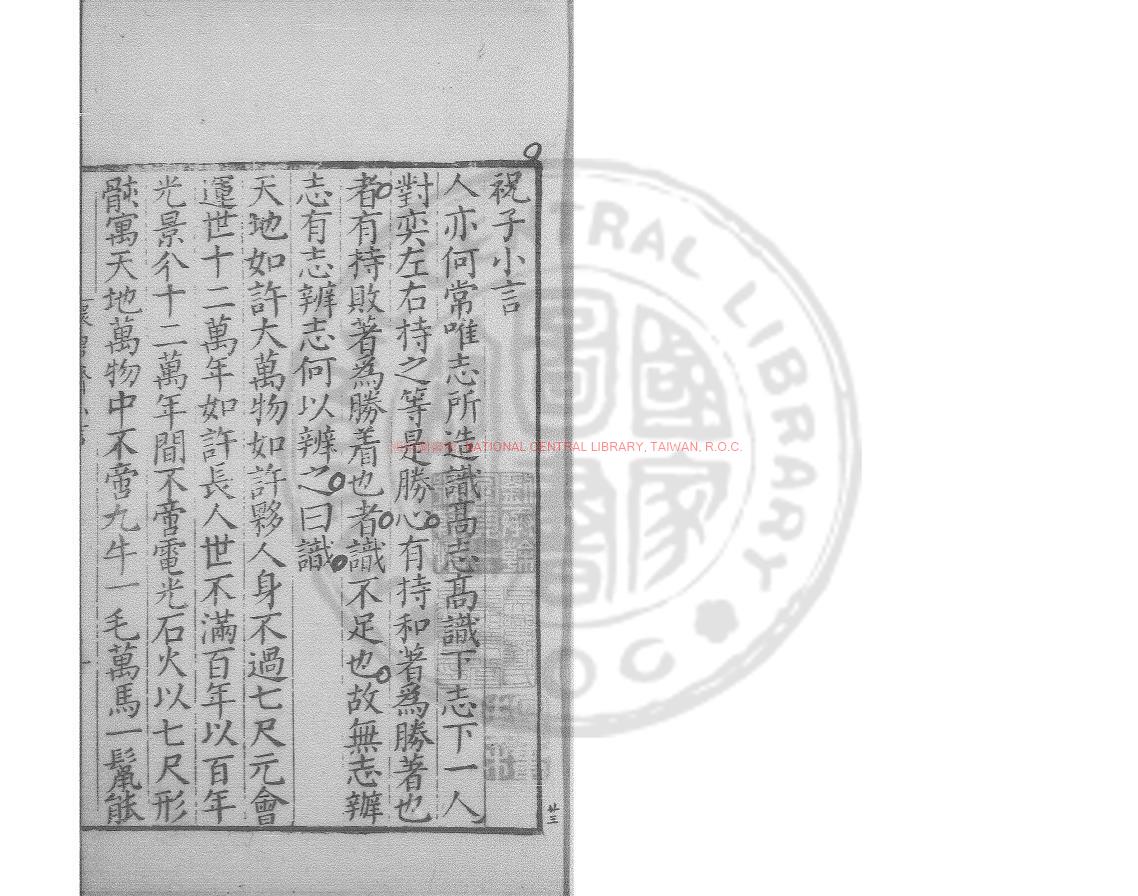 祝子小言
人亦何常唯志所造識髙志髙識下志下一人
對奕左右持之等是勝心有持和著爲勝著也
者有持敗著爲勝着也者識不足也故無志辦
志有志辦志何以辦之曰識
天地如許大萬物如許夥人身不過七尺元會
運世十二萬年如許長人世不滿百年以百年
光景介十二萬年間不啻電光石火以七尺形
骸寓天地萬物中不啻九牛一毛萬馬一鬣能
廿三
NATIONAL CENTRAL LIBRARY, TAIWAN, R.O.C.